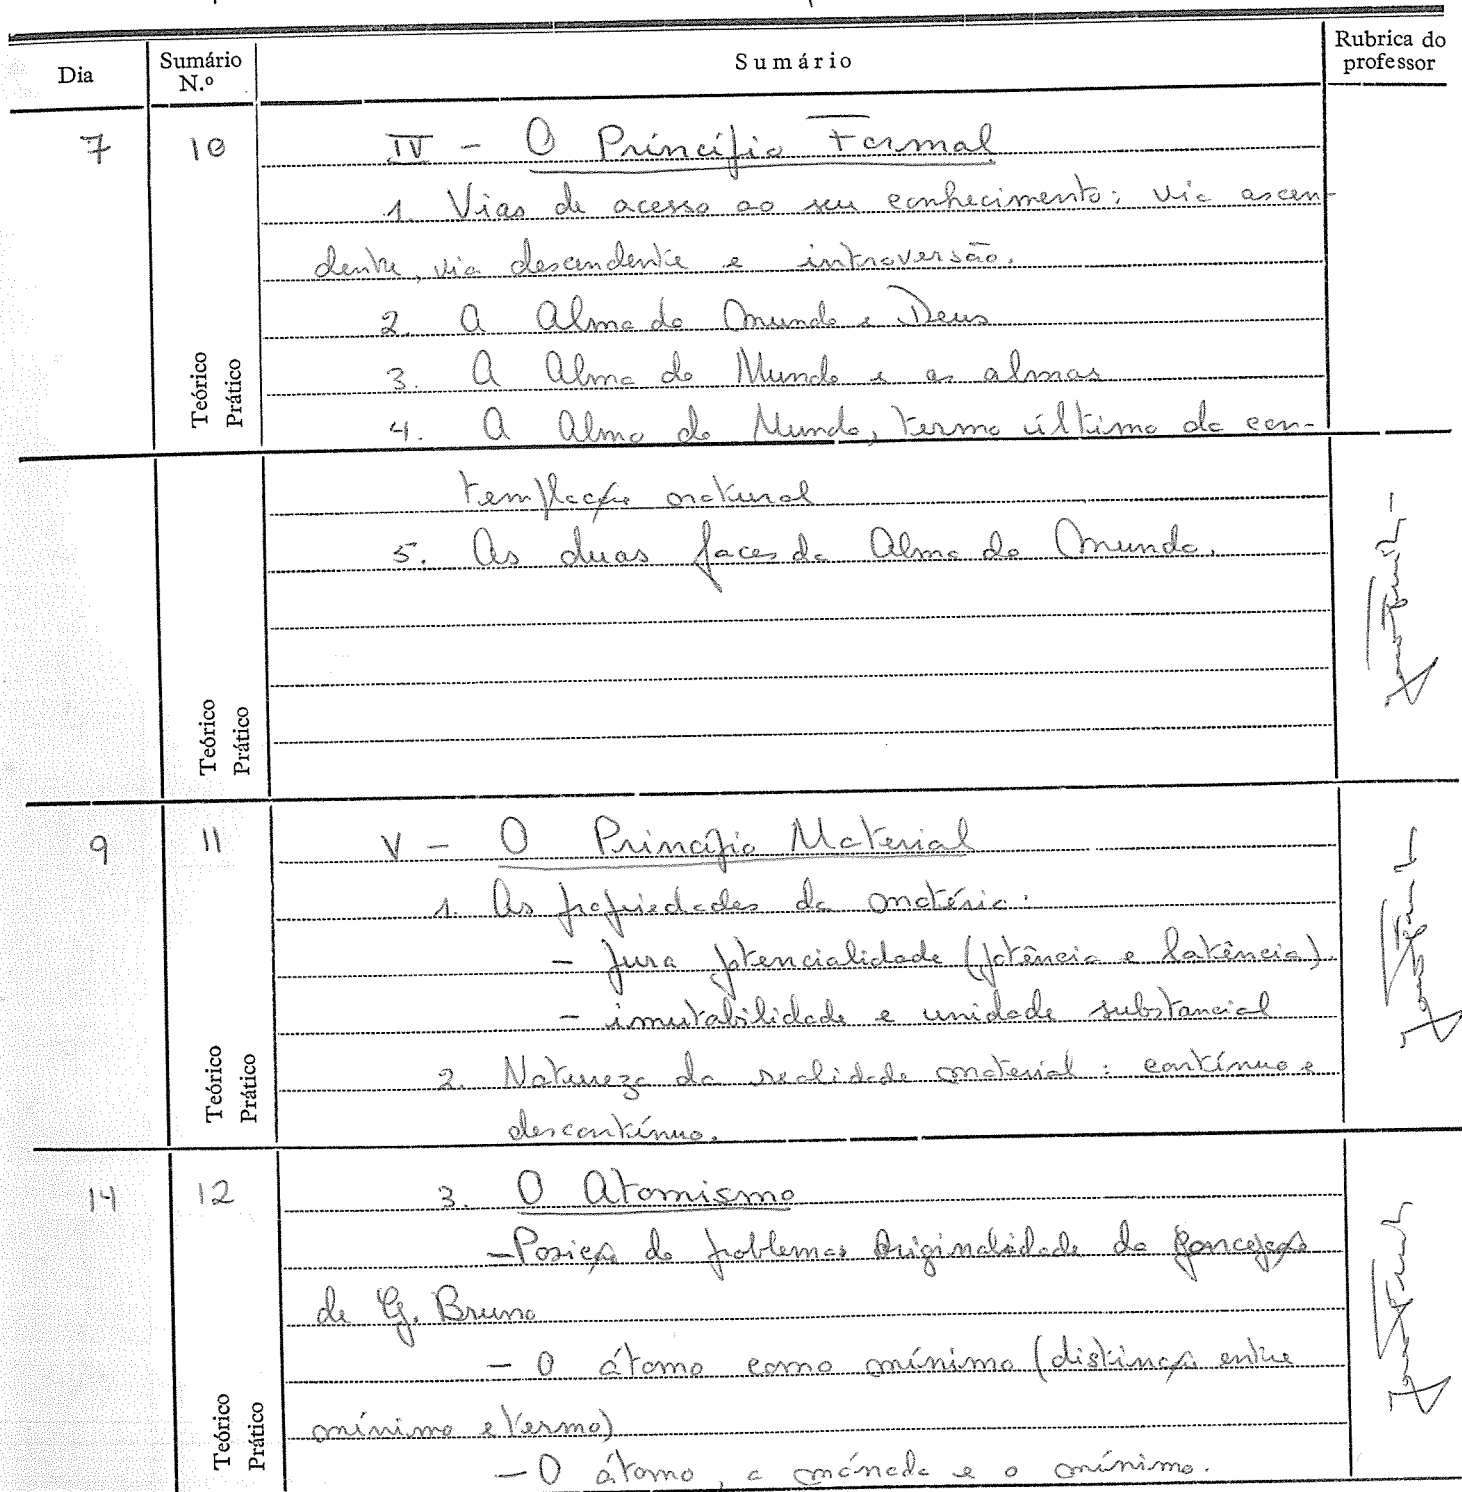 Dia
Sumário N.º
Sumário
Rubrica do professor
7
10
Teórico
Prático
IV - O Princípio Formal
1. Vias de acesso ao seu conhecimento: via ascen-
dente, via descendente e introversão.
2. A Alma do Mundo e Deus
3. A Alma do Mundo e as almas
4. A Alma do Mundo, termo último da con-
templação natural
5. As duas faces da Alma do Mundo.
Teórico
Prático
9
11
Teórico
Prático
V - O Princípio Material
1. As propriedades da matéria:
- pura potencialidade (potência e latência)
- imutabilidade e unidade substancial
2. Natureza da realidade material: contínuo e
descontínuo.
14
12
Teórico
Prático
3. O Atomismo
- Posição do problema: originalidade da concepção
de G. Bruno
- O átomo como mínimo (distinção entre
mínimo e termo)
- O átomo, a mónada e o mínimo.